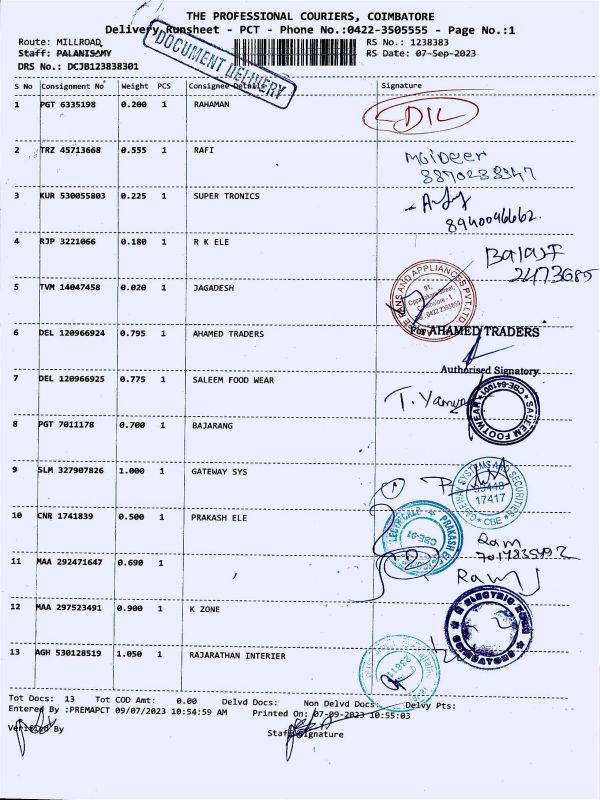 THE PROFESSIONAL COURIERS, COIMBATORE
Delivery Runsheet - PCT - Phone No.:0422-3505555 - Page No.:1
Route: MILLROAD RS No.: 1238383
Staff: PALANISAMY RS Date: 07-Sep-2023
DRS No.: DCJB123838301
DOCUMENT DELIVERY
S No Consignment No Weight PCS Consignee Details Signature
1 PGT 6335198 0.200 1 RAHAMAN
DIL
2 TRZ 45713668 0.555 1 RAFI
3 KUR 530055803 0.225 1 SUPER TRONICS
8940046662.
4 RJP 3221066 0.180 1 R K ELE
Balaji
2473685
5 TVM 14047458 0.020 1 JAGADESH
FANS AND APPLIANCES PVT.LTD.
6 DEL 120966924 0.795 1 AHAMED TRADERS
For AHAMED TRADERS
Authorised Signatory
7 DEL 120966925 0.775 1 SALEEM FOOD WEAR
SALEEM FOOTWEAR CBE-641001
8 PGT 7011178 0.700 1 BAJARANG
9 SLM 327907826 1.000 1 GATEWAY SYS
GATEWAY SYSTEMS AND SECURITIES
17417
CBE
10 CNR 1741839 0.500 1 PRAKASH ELE
CBE-01
Ram
11 MAA 292471647 0.690 1
Ram J
12 MAA 297523491 0.900 1 K ZONE
COIMBATORE
13 AGH 530128519 1.050 1 RAJARATHAN INTERIER
Tot Docs: 13 Tot COD Amt: 0.00 Delvd Docs: Non Delvd Docs: Delvy Pts:
Entered By :PREMAPCT 09/07/2023 10:54:59 AM Printed On: 07-09-2023 10:55:03
Verified By Staff Signature